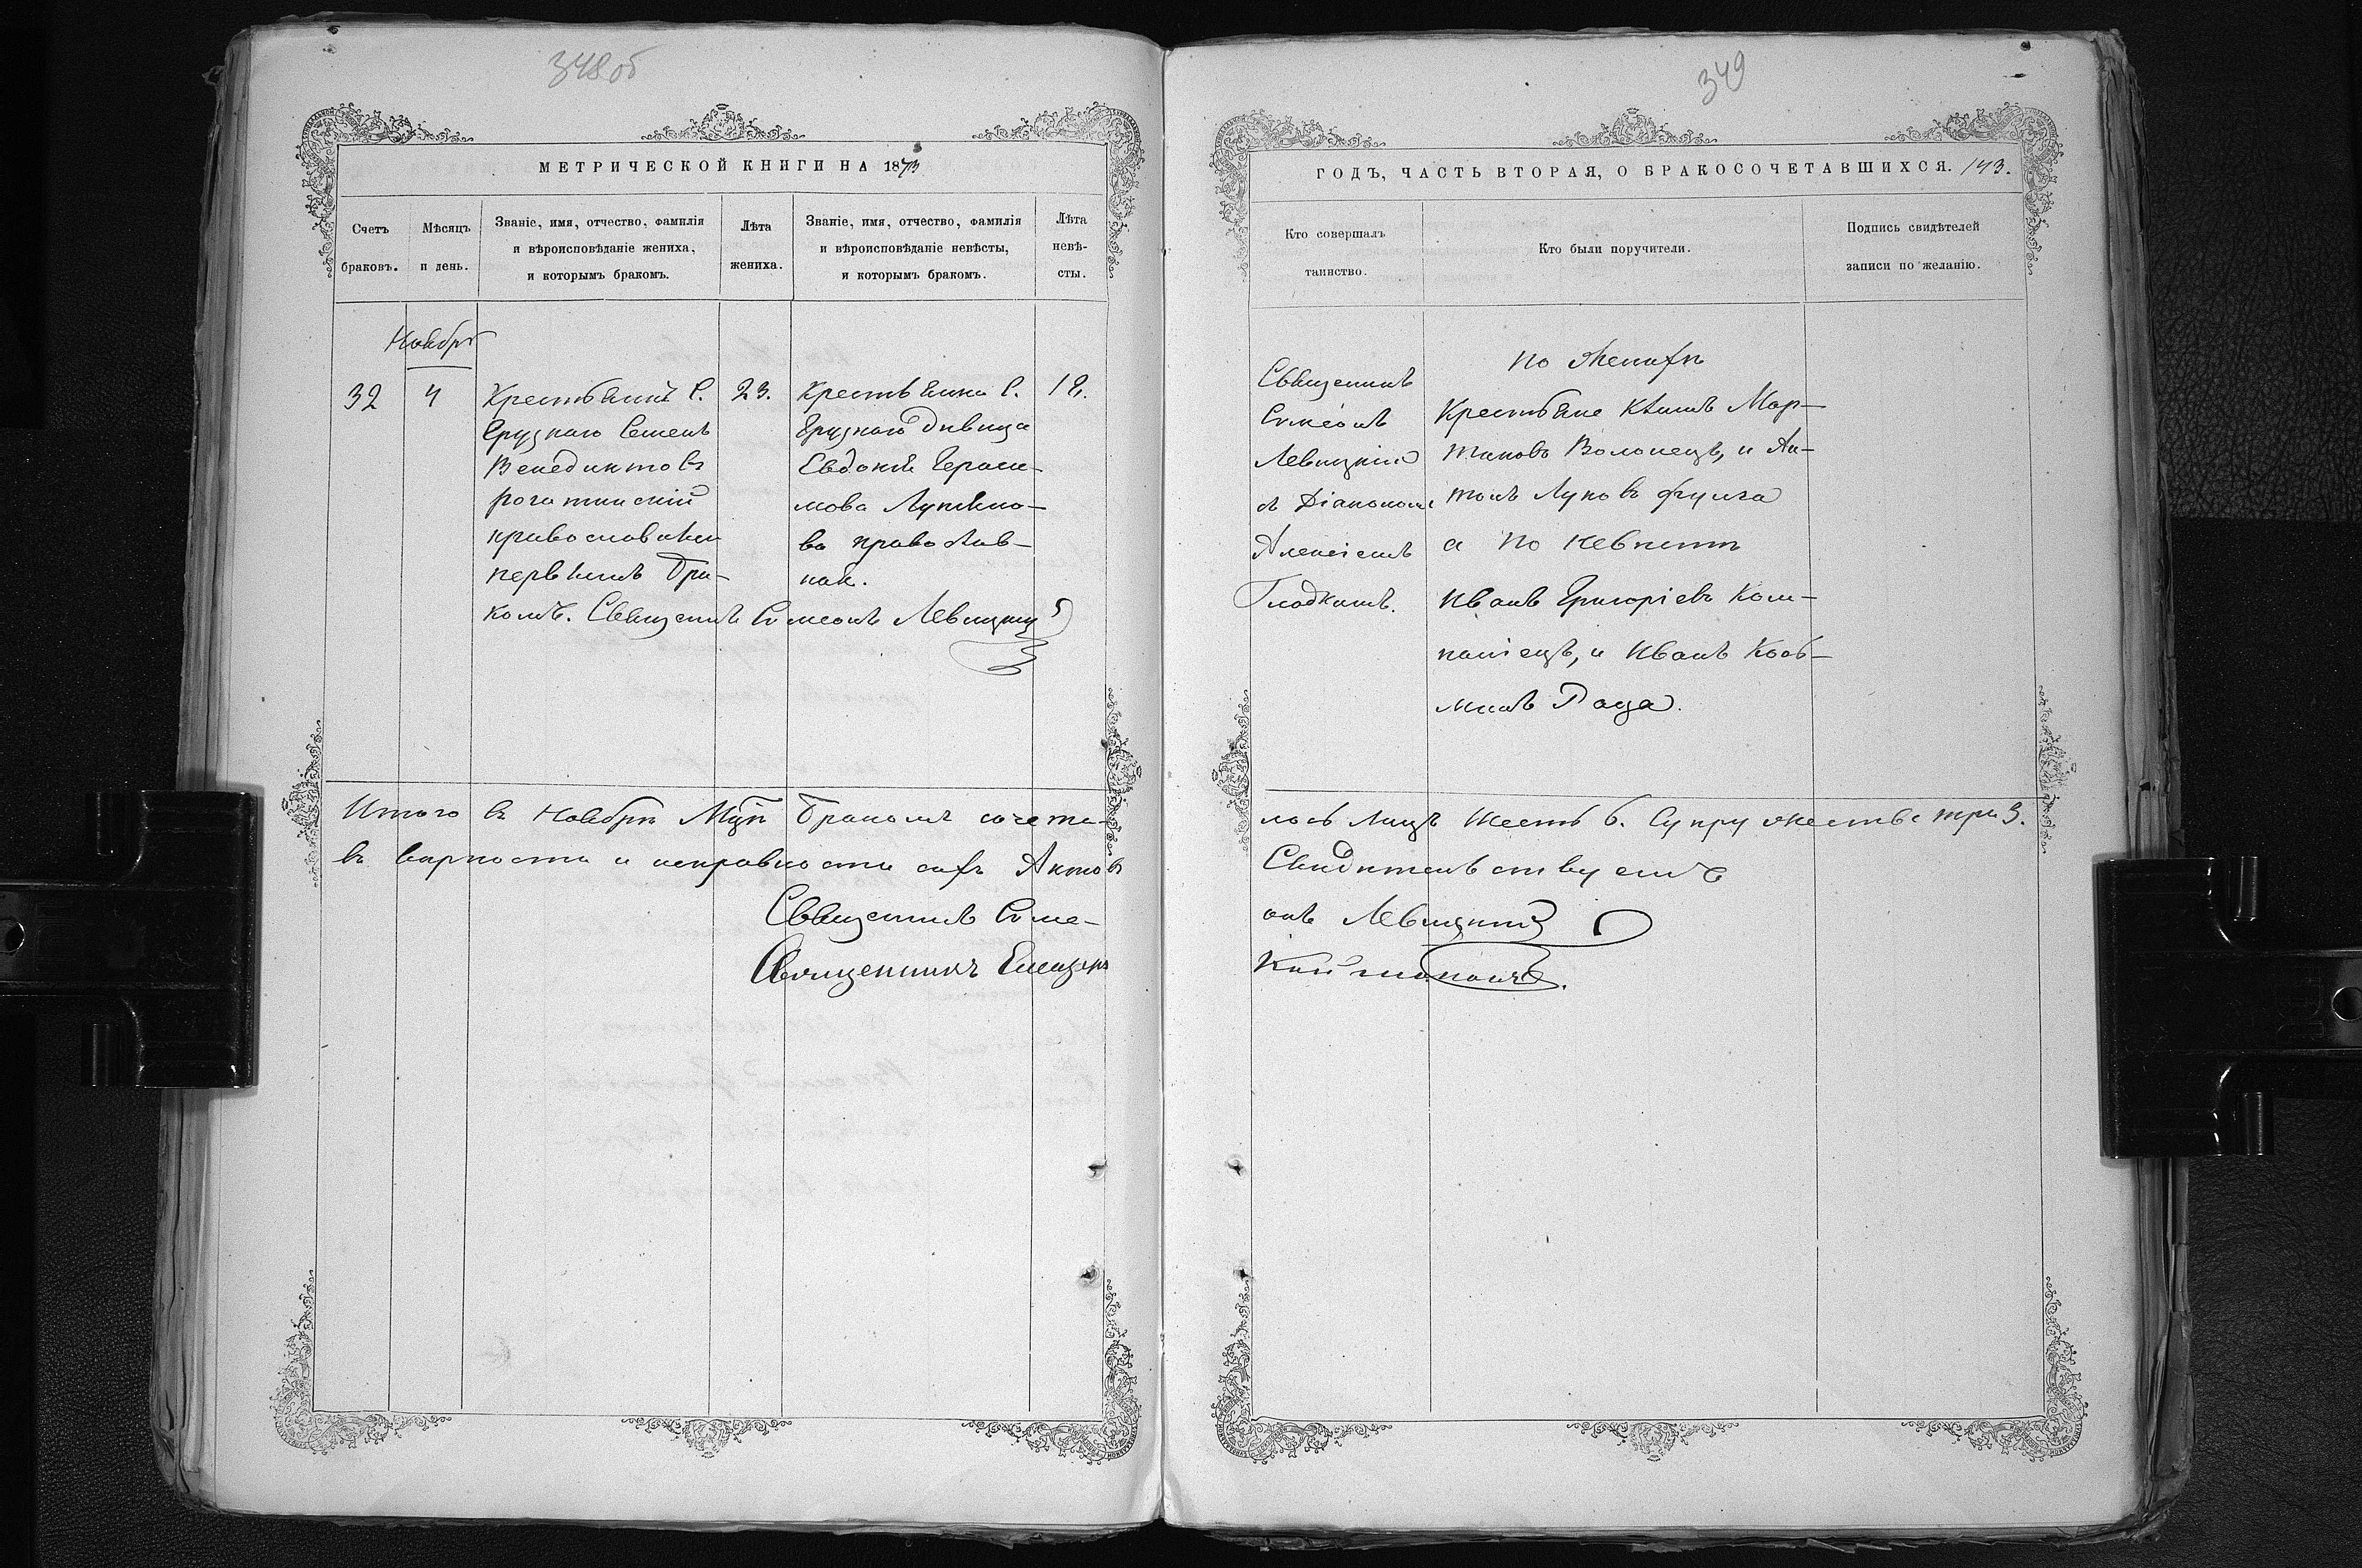 348об
МЕТРИЧЕСКОЙ КНИГИ НА 1873
Счетъ браковъ.
Мѣсяцъ и день.
Званіе, имя, отчество, фамилія
и вѣроисповѣданіе жениха,
и которымъ бракомъ.
Лѣта
жениха.
Званіе, имя, отчество, фамилія
и вѣроисповѣданіе невѣсты,
и которымъ бракомъ.
Лѣта
невѣ-
сты.
Ноябрь
32
4
Крестьянинъ С.
Грузкаго Семенъ
Венедиктовъ
Рогатинскій
православный
первымъ бра-
комъ. Священникъ Симеонъ Левицкій
23.
Крестьянка С.
Грузкаго дѣвица
Евдокія Гераси-
мова
ва православ-
ная.
18.
Итого въ Ноябрѣ Мцѣ бракомъ сочета-
въ вѣрности и исправности сихъ Актовъ
Священникъ Симе-
Священникъ
349
ГОДЪ, ЧАСТЬ ВТОРАЯ, О БРАКОСОЧЕТАВШИХСЯ. 143.
Кто совершалъ
таинство.
Кто были поручители.
Подпись свидѣтелей
записи по желанію.
Священникъ
Симеонъ
Левицкій
съ Діакономъ
Алексіемъ
Гладкимъ.
по женихѣ
Крестьяне Мар-
тиновъ Волонецъ, и Ан-
тонъ Луковъ
а по невѣстѣ
Иванъ Григоріевъ Ком-
паніецъ, и Иванъ Косъ-
минъ Раца.
лось лицъ шесть 6. Супружествъ три 3.
Свидѣтельствуемъ
онъ Левицкій